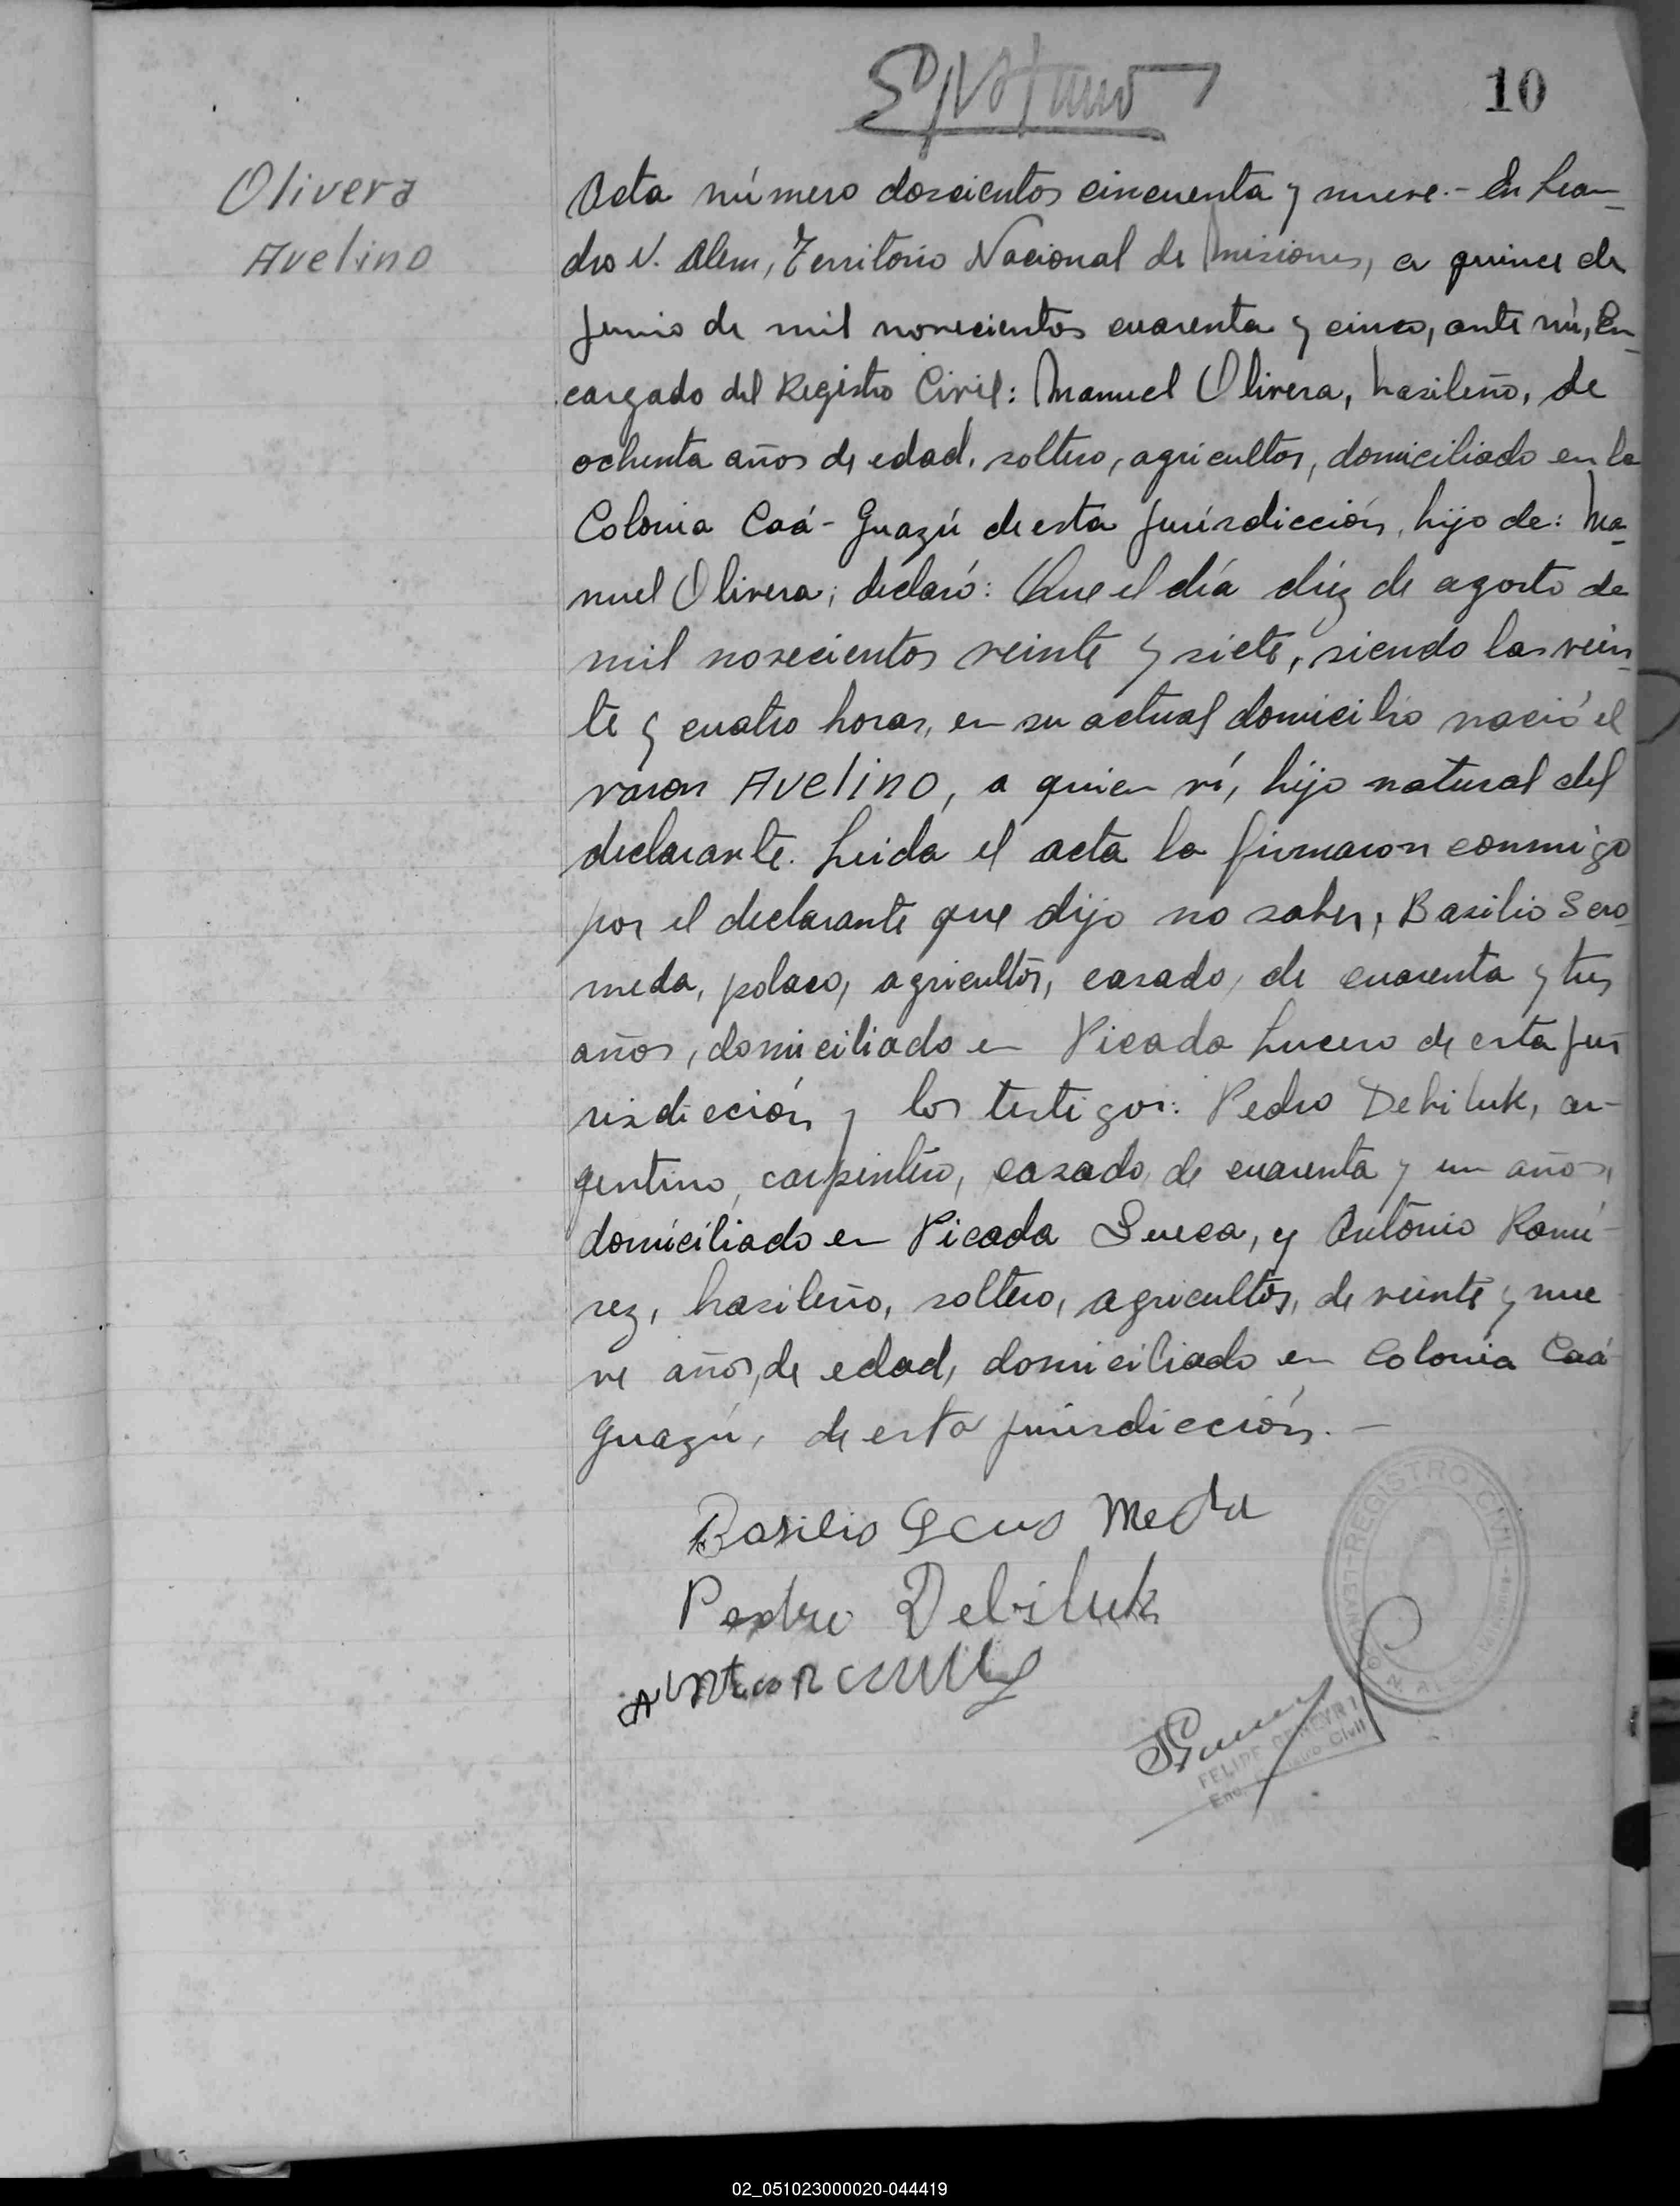 10
Olivera
Avelino
Acta número doscientos cincuenta y nueve.- En Lean-
dro N. Alem, Territorio Nacional de Misiones, a quince de
Junio de mil novecientos cuarenta y cinco, ante mí, En-
cargado del Registro Civil: Manuel Olivera, brasileño, de
ochenta años de edad, soltero, agricultor, domiciliado en la
Colonia Caá-Guazú de esta jurisdicción, hijo de: Ma-
nuel Olivera; declaró: Que el día diez de agosto de
mil novecientos veinte y siete, siendo las vein-
te y cuatro horas, en su actual domicilio nació el
varon Avelino, a quien ví, hijo natural del
declarante. Leida el acta la firmaron conmigo
por el declarante que dijo no saber, Basilio Sero
meda, polaco, agricultor, casado, de cuarenta y tres
años, domiciliado en Picada Lucero de esta ju
risdicción y los testigos: Pedro Debiluk, ar-
gentino, carpintero, casado, de cuarenta y un años,
domiciliado en Picada Sueca, y Antonio Ramí-
rez, brasileño, soltero, agricultor, de veinte y nue
ve años, de edad, domiciliado en Colonia Caá
Guazú, de esta jurisdicción.-
Basilio Meda
Pedro Debiluk
REGISTRO CIVIL
N. ALEM
FELIPE
Enc. Civil
02_051023000020-044419